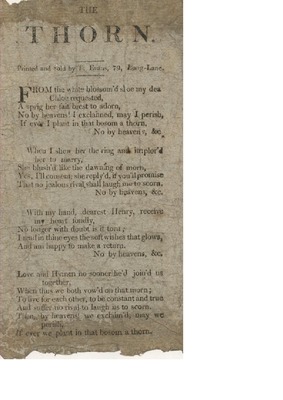 THE
THORN.
Printed and sold by J. Evans, 79, Long-Lane.
FROM the white blossom'd sloe my dea
Chloe requested,
A sprig her fair breast to adorn,
No by heavens! I exclaimed, may I perish,
If ever I plant in that bosom a thorn.
No by heavens, &c.
When I shew her the ring and implor'd
her to marry,
She blush'd like the dawning of morn,
Yes, I'll consent, she reply'd, if you'll promise
That no jealous rival shall laugh me to scorn.
No by heavens, &c.
With my hand, dearest Henry, receive
my heart fondly,
No longer with doubt is it torn;
I read in thine eyes the soft wishes that glows,
And am happy to make a return.
No by heavens, &c.
Love and Hymen no sooner he'd join'd us
together,
When thus we both vow'd on that morn;
To live for each other, to be constant and true
And suffer no rival to laugh us to scorn.
Then, by heavens, we exclaim'd, may we
perish,
If ever we plant in that bosom a thorn.